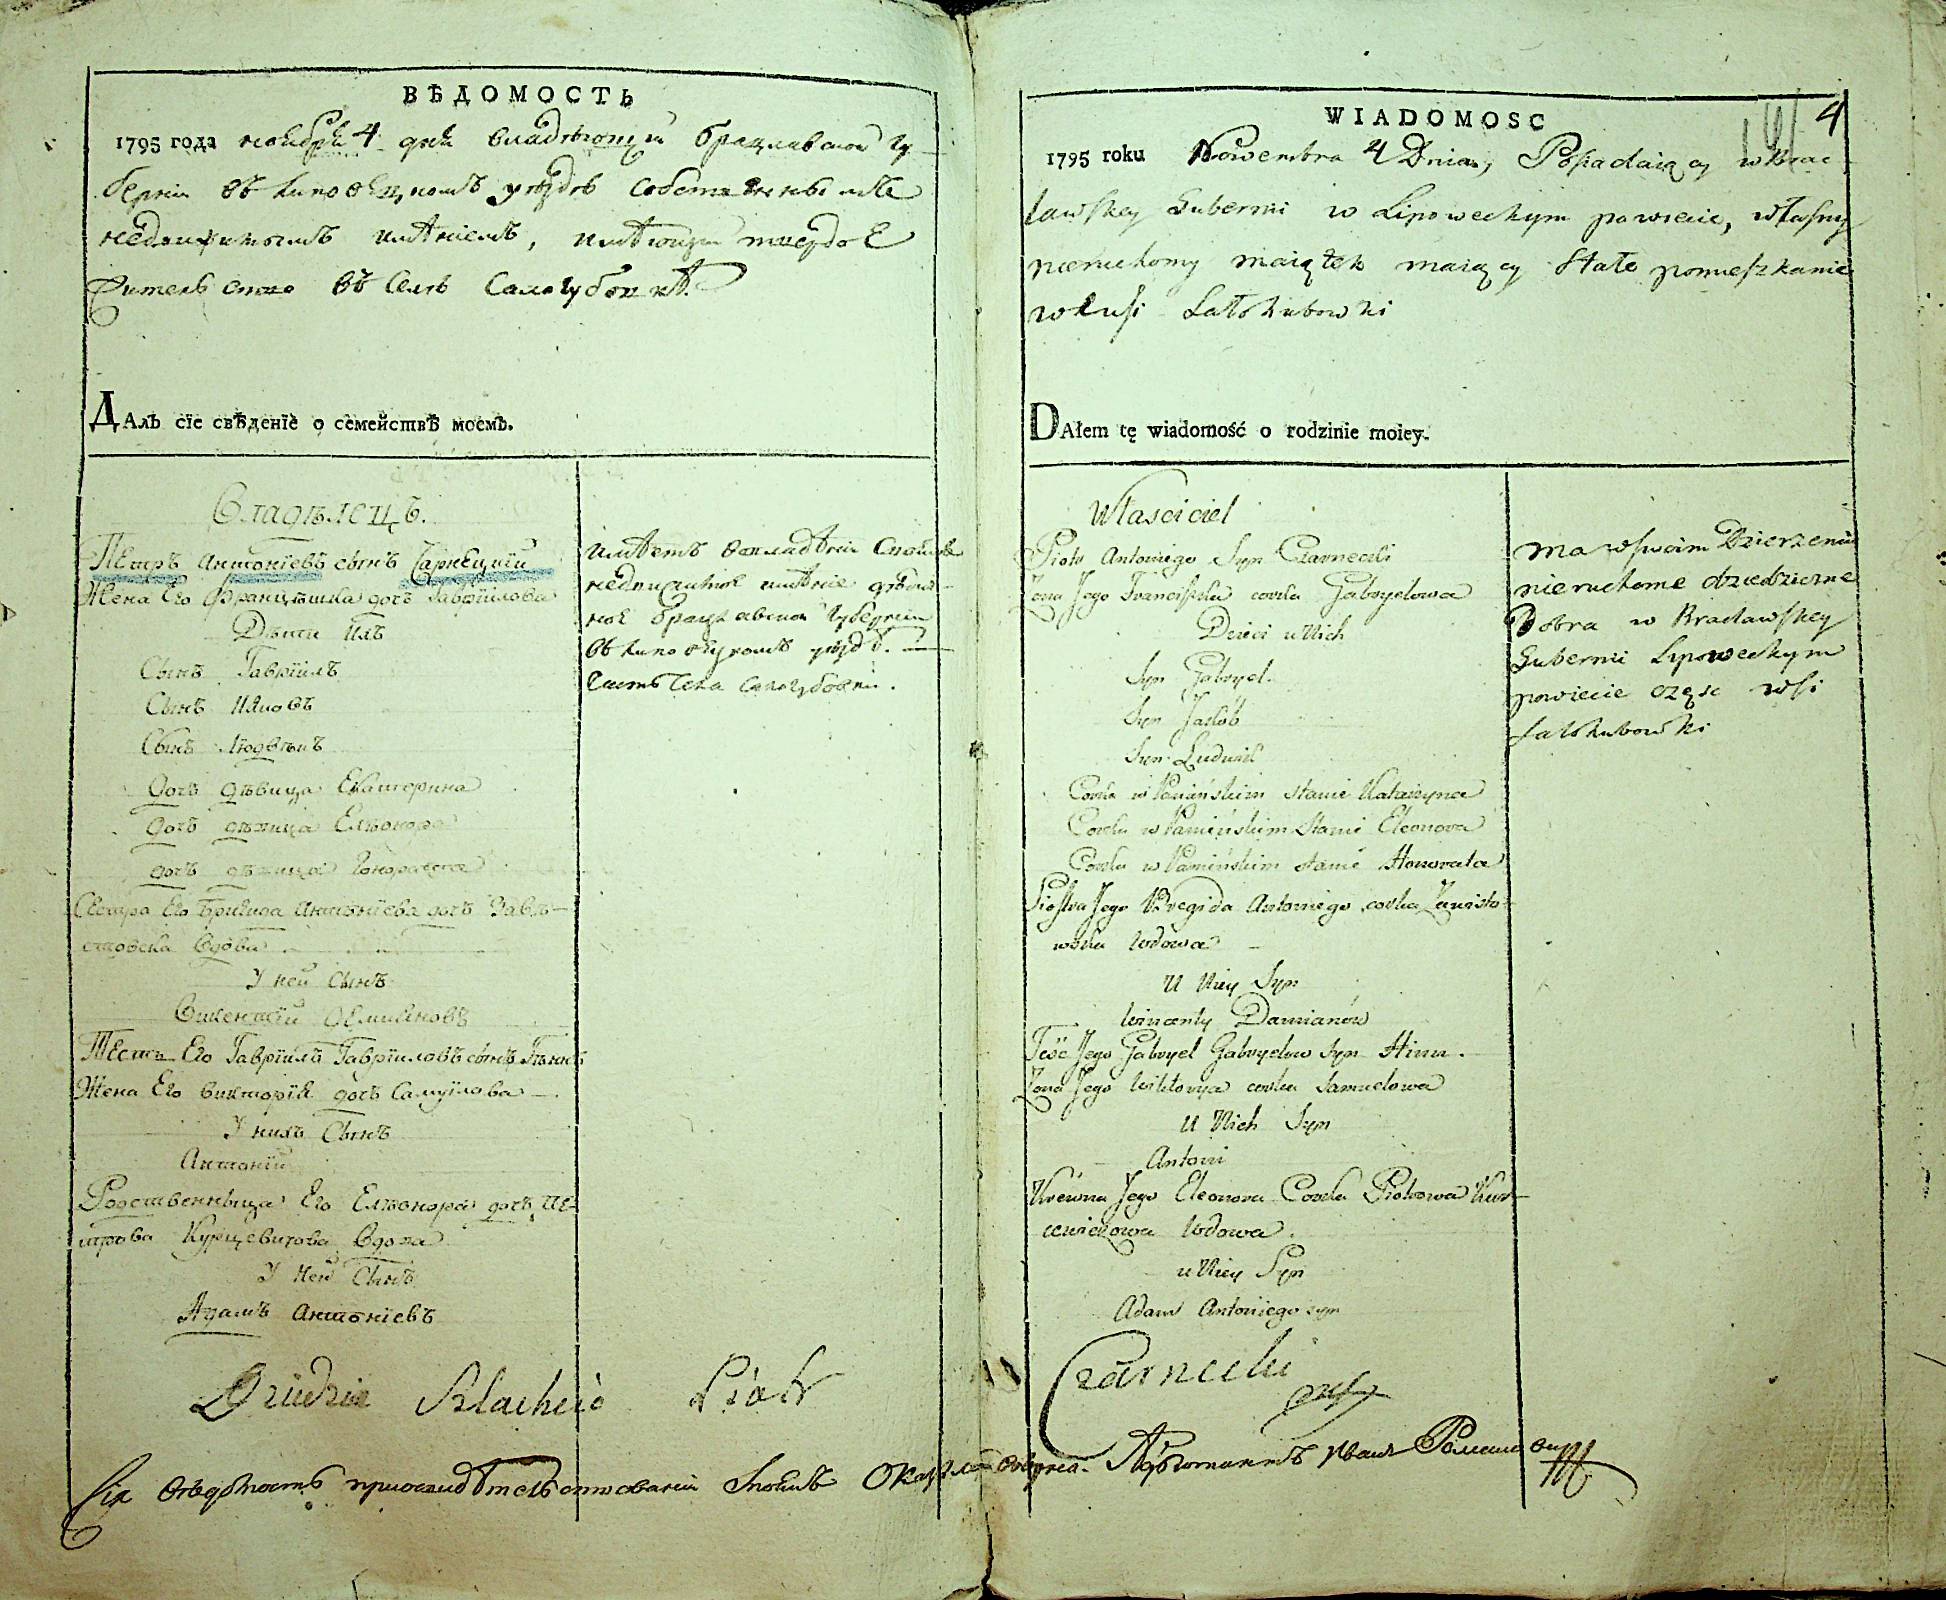 ВѢДОМОСТЬ
1795 года ноября 4 дня владѣющій брацлавской гу
берніи въ липовецкомъ уѣздѣ собственнымъ
недвижимымъ имѣніемъ, имѣющій твердое
жительство въ селѣ Сологубовкѣ.
ДАлъ сїе свѣденїе о семействѣ моемъ.
Владѣлецъ.
Петръ Антонїевъ сынъ Чарнецкїй
Жена Его Францѣшка дочъ Гаврїилова
Дѣти ихъ
Сынъ Гаврїилъ
Сынъ Ияковъ
Сынъ Людвѣкъ
дочъ дѣвица Екатерина
дочъ дѣвица Елѣонора
дочъ дѣвица Гонората
Сестра Его Бригида Антонїева дочъ
вдова
У ней сынъ
Викентїй Демияновъ
Тесть Его Гаврїилъ Гаврїиловъ сынъ
Жена Его викторїя дочъ Самуїлова
У нихъ Сынъ
Антонїй
Родственныца Его Елѣонора дочъ Пе-
трова Курцевичова вдова
У ней Сынъ
Адамъ Антонїевъ
имѣетъ
недвижимое имѣние
ное брацлавской губернїи
въ липовецкомъ уѣздѣ.
часть села сологубовки.
Piotr
WIADOMOSC
4
1795 roku Nowembra 4 Dnia, Posiadaiący w Brac
ławskey Gubernii w Lipoweckym powiecie, własny
nieruchomy maiątek maiący Stałe pomieszkanie
w wsi Sałohubowki
DAłem tę wiadomość o rodzinie moiey.
Własciciel
Piotr Antoniego Syn Czarnecki
Zona Jego Franciszka corka Gabryelowa
Dzieci u Nich
Syn Gabryel.
Syn Jakób
Syn Ludwik
Corka w Panińskim stanie Katarzyna
Corka w Panińskim Stanie Eleonora
Corka w Panińskim stanie Honorata
Siostra Jego Bregida Antoniego corka
wska Wdowa
U Niey Syn
Wincenty Damianów
Teść Jego Gabryel Gabryelow Syn
Zona Jego Wiktorya corka Samuelowa
U Nich Syn
Antoni
Krewna Jego Eleonora Corka Piotrowa Kur-
cewiczowa Wdowa.
u Niey Syn
Adam Antoniego syn
ma w swoim Dzierzeniu
nieruchome dziedziczne
Dobra w Bracławskey
Gubernii Lipoweckym
powiecie częsc wsi
Sałohubowki
Czarnecki
Сія вѣдомость